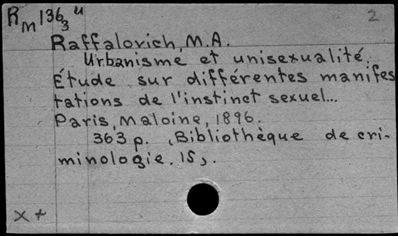 RM 136 u 2
3
Raffalovich, M.A.
Urbanisme et unisexualité.
Étude sur différentes manifes
tations de l'instinct sexuel...
Paris, Maloine, 1896.
363 p. (Bibliothèque de cri-
minologie. 15).
x +